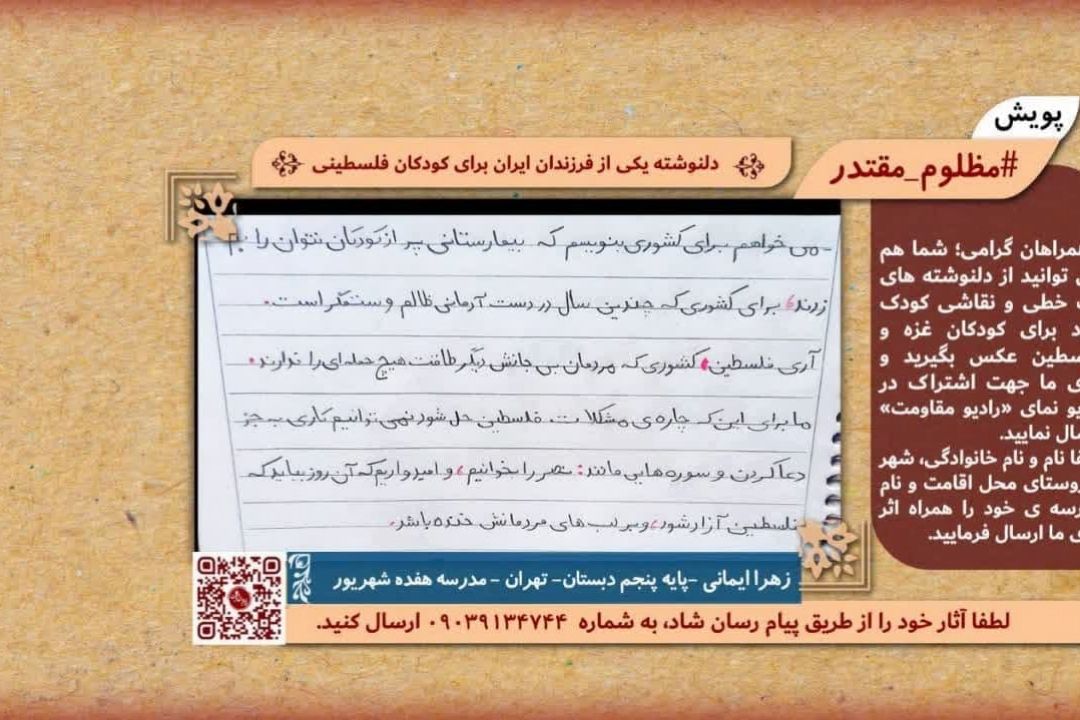 پویش
#مظلوم_مقتدر
دلنوشته یکی از فرزندان ایران برای کودکان فلسطینی
می خواهم برای کشوری بنویسم که بیمارستانی پر از کودکان نتوان را بم
زدند، برای کشوری که چندین سال در دست آدمانی ظالم و ستمگر است.
آری فلسطین، کشوری که مردمان بی جانش دیگر طاقت هیچ حمله ای را ندارند.
ما برای این که چاره ی مشکلات فلسطین حل شود نمی توانیم کاری به جز
دعا کردن و سوره هایی مانند: نصر را بخوانیم، و امیدواریم که آن روز بیاید که
فلسطین آزاد شود، و بر لب های مردمانش خنده باشد.
مراهان گرامی؛ شما هم
توانید از دلنوشته های
خطی و نقاشی کودک
د برای کودکان غزه و
سطین عکس بگیرید و
ی ما جهت اشتراک در
یو نمای «رادیو مقاومت»
سال نمایید.
فا نام و نام خانوادگی، شهر
روستای محل اقامت و نام
رسه ی خود را همراه اثر
ی ما ارسال فرمایید.
زهرا ایمانی -پایه پنجم دبستان- تهران - مدرسه هفده شهریور
لطفا آثار خود را از طریق پیام رسان شاد، به شماره ۰۹۰۳۹۱۳۴۷۴۴ ارسال کنید.